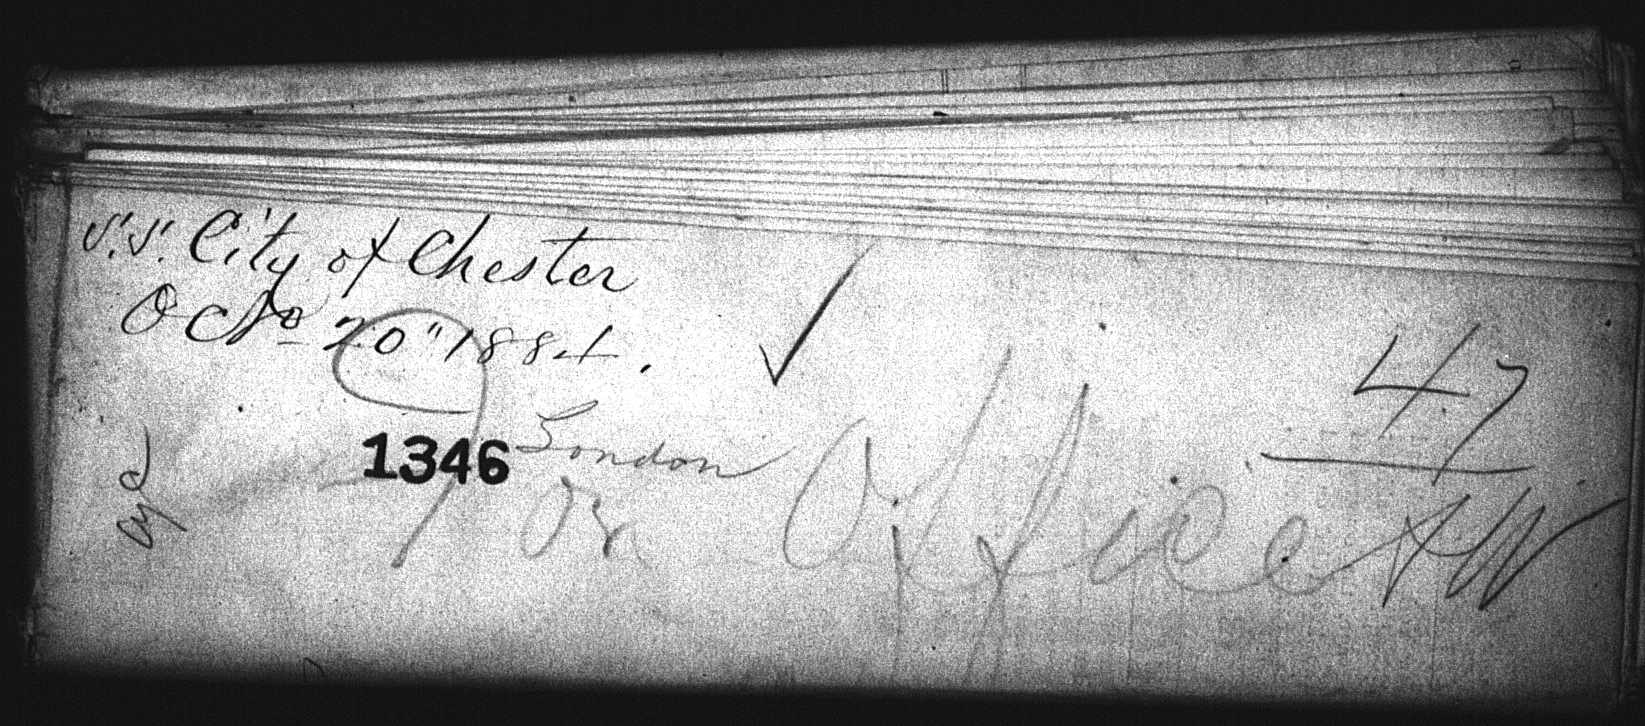 S.S. City of Chester
Oct. 20" 1884.
47
1346
London
For Office